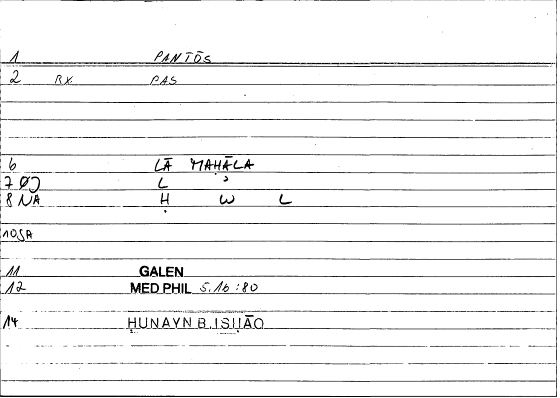 1 PANTŌS
2 RX. PAS
6 LĀ MAḤĀLA
7 ØJ L ʾ
8 NA Ḥ W L
10 SA
11 GALEN
12 MED PHIL 5.16:80
14 ḤUNAYN B. ISḤĀQ